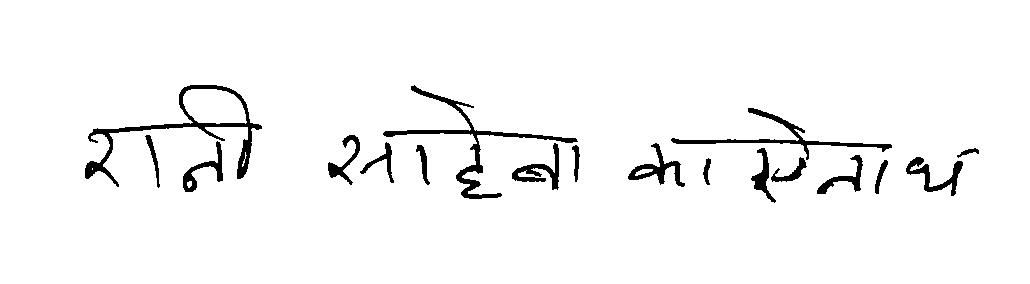 रानी साहेबा का सेनाथ